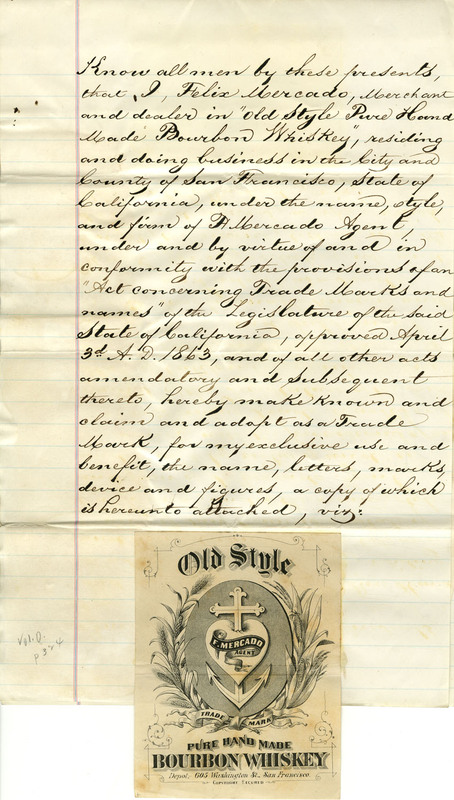 Know all men by these presents,
that I, Felix Mercado, Merchant
and dealer in "Old Style Pure Hand
Made Bourbon Whiskey", residing
and doing business in the City and
County of San Francisco, State of
California, under the name, style,
and firm of F. Mercado Agent,
under and by virtue of and in
conformity with the provisions of an
"Act concerning Trade Marks and
names" of the Legislature of the said
State of California, approved April
3d A. D. 1863, and of all other acts
amendatory and subsequent
thereto, hereby make known and
claim and adopt as a Trade
Mark, for my exclusive use and
benefit, the name, letters, marks,
device and figures, a copy of which
is hereunto attached, viz:
Vol. 2
p324
Old Style
F. MERCADO
AGENT
TRADE MARK
PURE HAND MADE
BOURBON WHISKEY
Depot, 605 Washington St., San Francisco.
COPYRIGHT SECURED